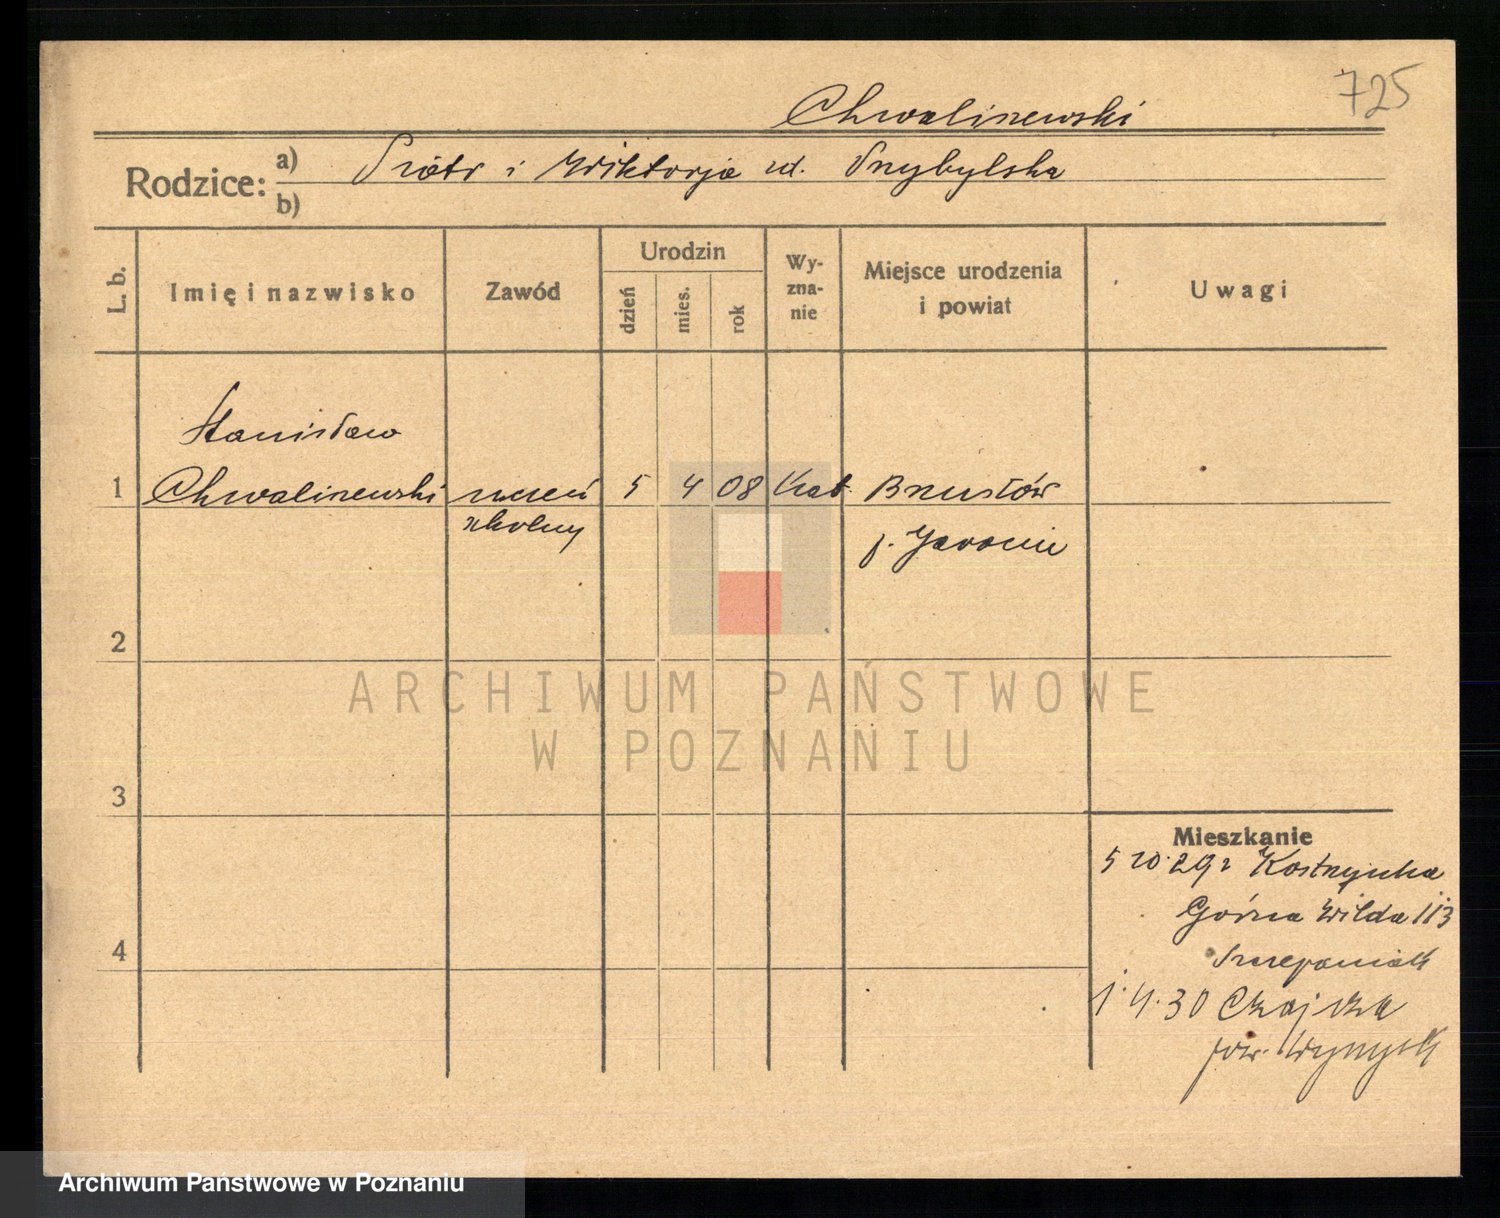 725
Chwaliszewski
Rodzice: a) Piotr i Wiktorja ur. Przybylska
b)
L. b.
Imię i nazwisko
Zawód
Urodzin
dzień
mies.
rok
Wy-
zna-
nie
Miejsce urodzenia
i powiat
Uwagi
Stanisław
1 Chwaliszewski uczeń 5 4 08 kat. Brzustów
szkolny p. Jarocin
2
ARCHIWUM PAŃSTWOWE
W POZNANIU
3
Mieszkanie
5 10.29 z
Górna Wilda 113
4
Szczepaniak
1.4.30
pow. Wyrzysk
Archiwum Państwowe w Poznaniu